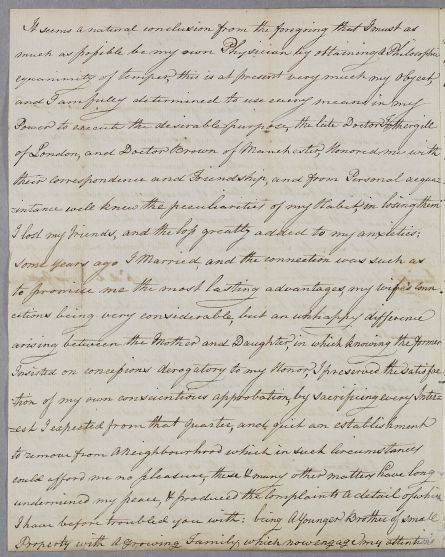 It seems a natural conclusion from the foregoing that I must as
much as possible be my own Physician by obtaining a Philosophic
equanimity of temper, this is at present very much my Object,
and I am fully determined to use every means in my
Power to execute the desirable purpose, the late Doctor Fothergill
of London, and Doctor Brown of Manchester, Honored me with
their correspondence and Friendship, and from Personal acqua=
=intance well knew the peculiarities of my Habit, in losing them
I lost my friends, and the loss greatly added to my anxieties:
some years ago I Married, and the connection was such as
to promise me the most lasting advantages, my wife's conn=
ections being very considerable, but an unhappy difference
arising between the Mother and Daughter, in which knowing the former
insisted on concessions derogatory to my Honor, I preserved the satisfac=
=tion of my own conscientious approbation, by sacrificing every Inter=
=est I expected from that quarter, and quit an establishment
to remove from a Neighbourhood which in such Circumstances
could afford me no pleasure, these & many other matters have long
undermined my peace, & produced the complaints a detail of which
I have before troubled you with: being a Younger Brother of small
Property with a growing Family, which now engage my attentions